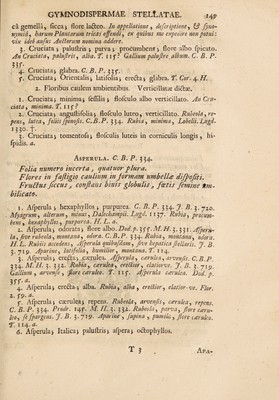 GYMNODISPERMAE STELLATAE. 149
câ gemelli, sicca; flore lacteo. In appellatione, descriptione, & syno-
nymiâ, harum Plantarum triste offendi, in quibus me expedire non potui:
vix ideò ausus Auctorum nomina addere.
3. Cruciata; palustris; parva; procumbens; flore albo spicato.
An Cruciata, palustris, alba. T. 115? Gallium palustre album. C. B. P.
335.
4. Cruciata; glabra. C. B. P. 335.
5. Cruciata; Orientalis; latifolia; erecta; glabra. T. Cor. 4. H.
2. Floribus caulem ambientibus. Verticillatæ dictæ.
1. Cruciata; minima; sessilis; flosculo albo verticillato. An Cru-
ciata, minima. T. 115?
2. Cruciata; angustifolia; flosculo luteo, verticillato. Rubeola, re-
pens, lutea, foliis spinosis. C. B. P. 334. Rubia, minima, Lobelii. Lugd.
1330. †.
3. Cruciata; tomentosa; flosculis luteis in corniculis longis, hi-
spidis. a.
ASPERULA. C. B. P. 334.
Folia numero incerta, quatuor plura.
Flores in fastigio caulium in formam umbellæ dispositi.
Fructus siccus, constans binis globulis, fætis semine um-
bilicato.
1. Asperula; hexaphyllos; purpurea. C. B. P. 334. J. B. 3. 720.
Myagrum, alterum, minus, Dalechampii. Lugd. 1137. Rubia, procum-
bens, hexaphyllos, purpurea. H. L. a.
2. Asperula; odorata; flore albo. Dod. p. 355. M. H. 3. 331. Asperu-
la, sive rubeola, montana, odora. C. B. P. 334. Rubia, montana, odora.
H. L. Rubiis accedens, Asperula quibusdam, sive hepatica stellaris. J. B.
3. 719. Aparine, latifolia, humilior, montana. T. 114.
3. Asperula; erecta; cærulea. Asperula, cærulea, arvensis. C. B. P.
334. M. H. 3. 332. Rubia, cærulea, erectior, elatiorve. J. B. 3. 719.
Gallium, arvense, flore cæruleo. T. 115. Asperula cærulea. Dod. p.
355. a.
4. Asperula; erecta; alba. Rubia, alba, erectior, elatior-ve. Flor.
2. 59. a.
5. Asperula; cærulea; repens. Rubeola, arvensis, cærulea, repens.
C. B. P. 334. Prodr. 145. M. H. 3. 332. Rubeola, parva, flore cæru-
leo, se spargens. J. B. 3. 719. Aparine, supina, pumila, flore cæruleo.
T. 114. a.
6. Asperula; Italica; palustris; aspera; octophyllos.
T 3 Apa-